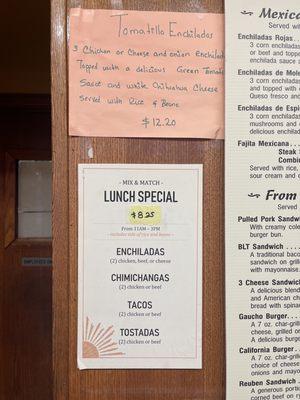 Tomatillo Enchiladas
3 Chicken or Cheese and onion Enchiladas
Topped with a delicious Green Tomato
Sauce and white Chihuahua Cheese
Served with Rice & Beans
$12.20
- MIX & MATCH -
LUNCH SPECIAL
$8.25
From 11AM - 3PM
- includes side of rice and beans -
ENCHILADAS
(2) chicken, beef, or cheese
CHIMICHANGAS
(2) chicken or beef
TACOS
(2) chicken or beef
TOSTADAS
(2) chicken or beef
EMPLOYEES ON
Mexica
Served with
Enchiladas Rojas
3 corn enchiladas
or beef and topped
enchilada sauce a
Enchiladas de Mole
3 corn enchiladas
and topped with
Queso fresco and
Enchiladas de Espi
3 corn enchiladas
mushrooms and
delicious enchilada
Fajita Mexicana
Steak
Combin
Served with rice,
sour cream and
From
Served
Pulled Pork Sandw
With creamy cole
burger bun.
BLT Sandwich
A traditional baco
sandwich on grill
with mayonnaise
3 Cheese Sandwic
A delicious blend
and American che
bread with spinac
Gaucho Burger
A 7 oz. char-grill
cheese, grilled on
A delicious burge
California Burger
A 7 oz. char-grille
choice of cheese
onions and mayo
Reuben Sandwich
A generous portio
corned beef on rye